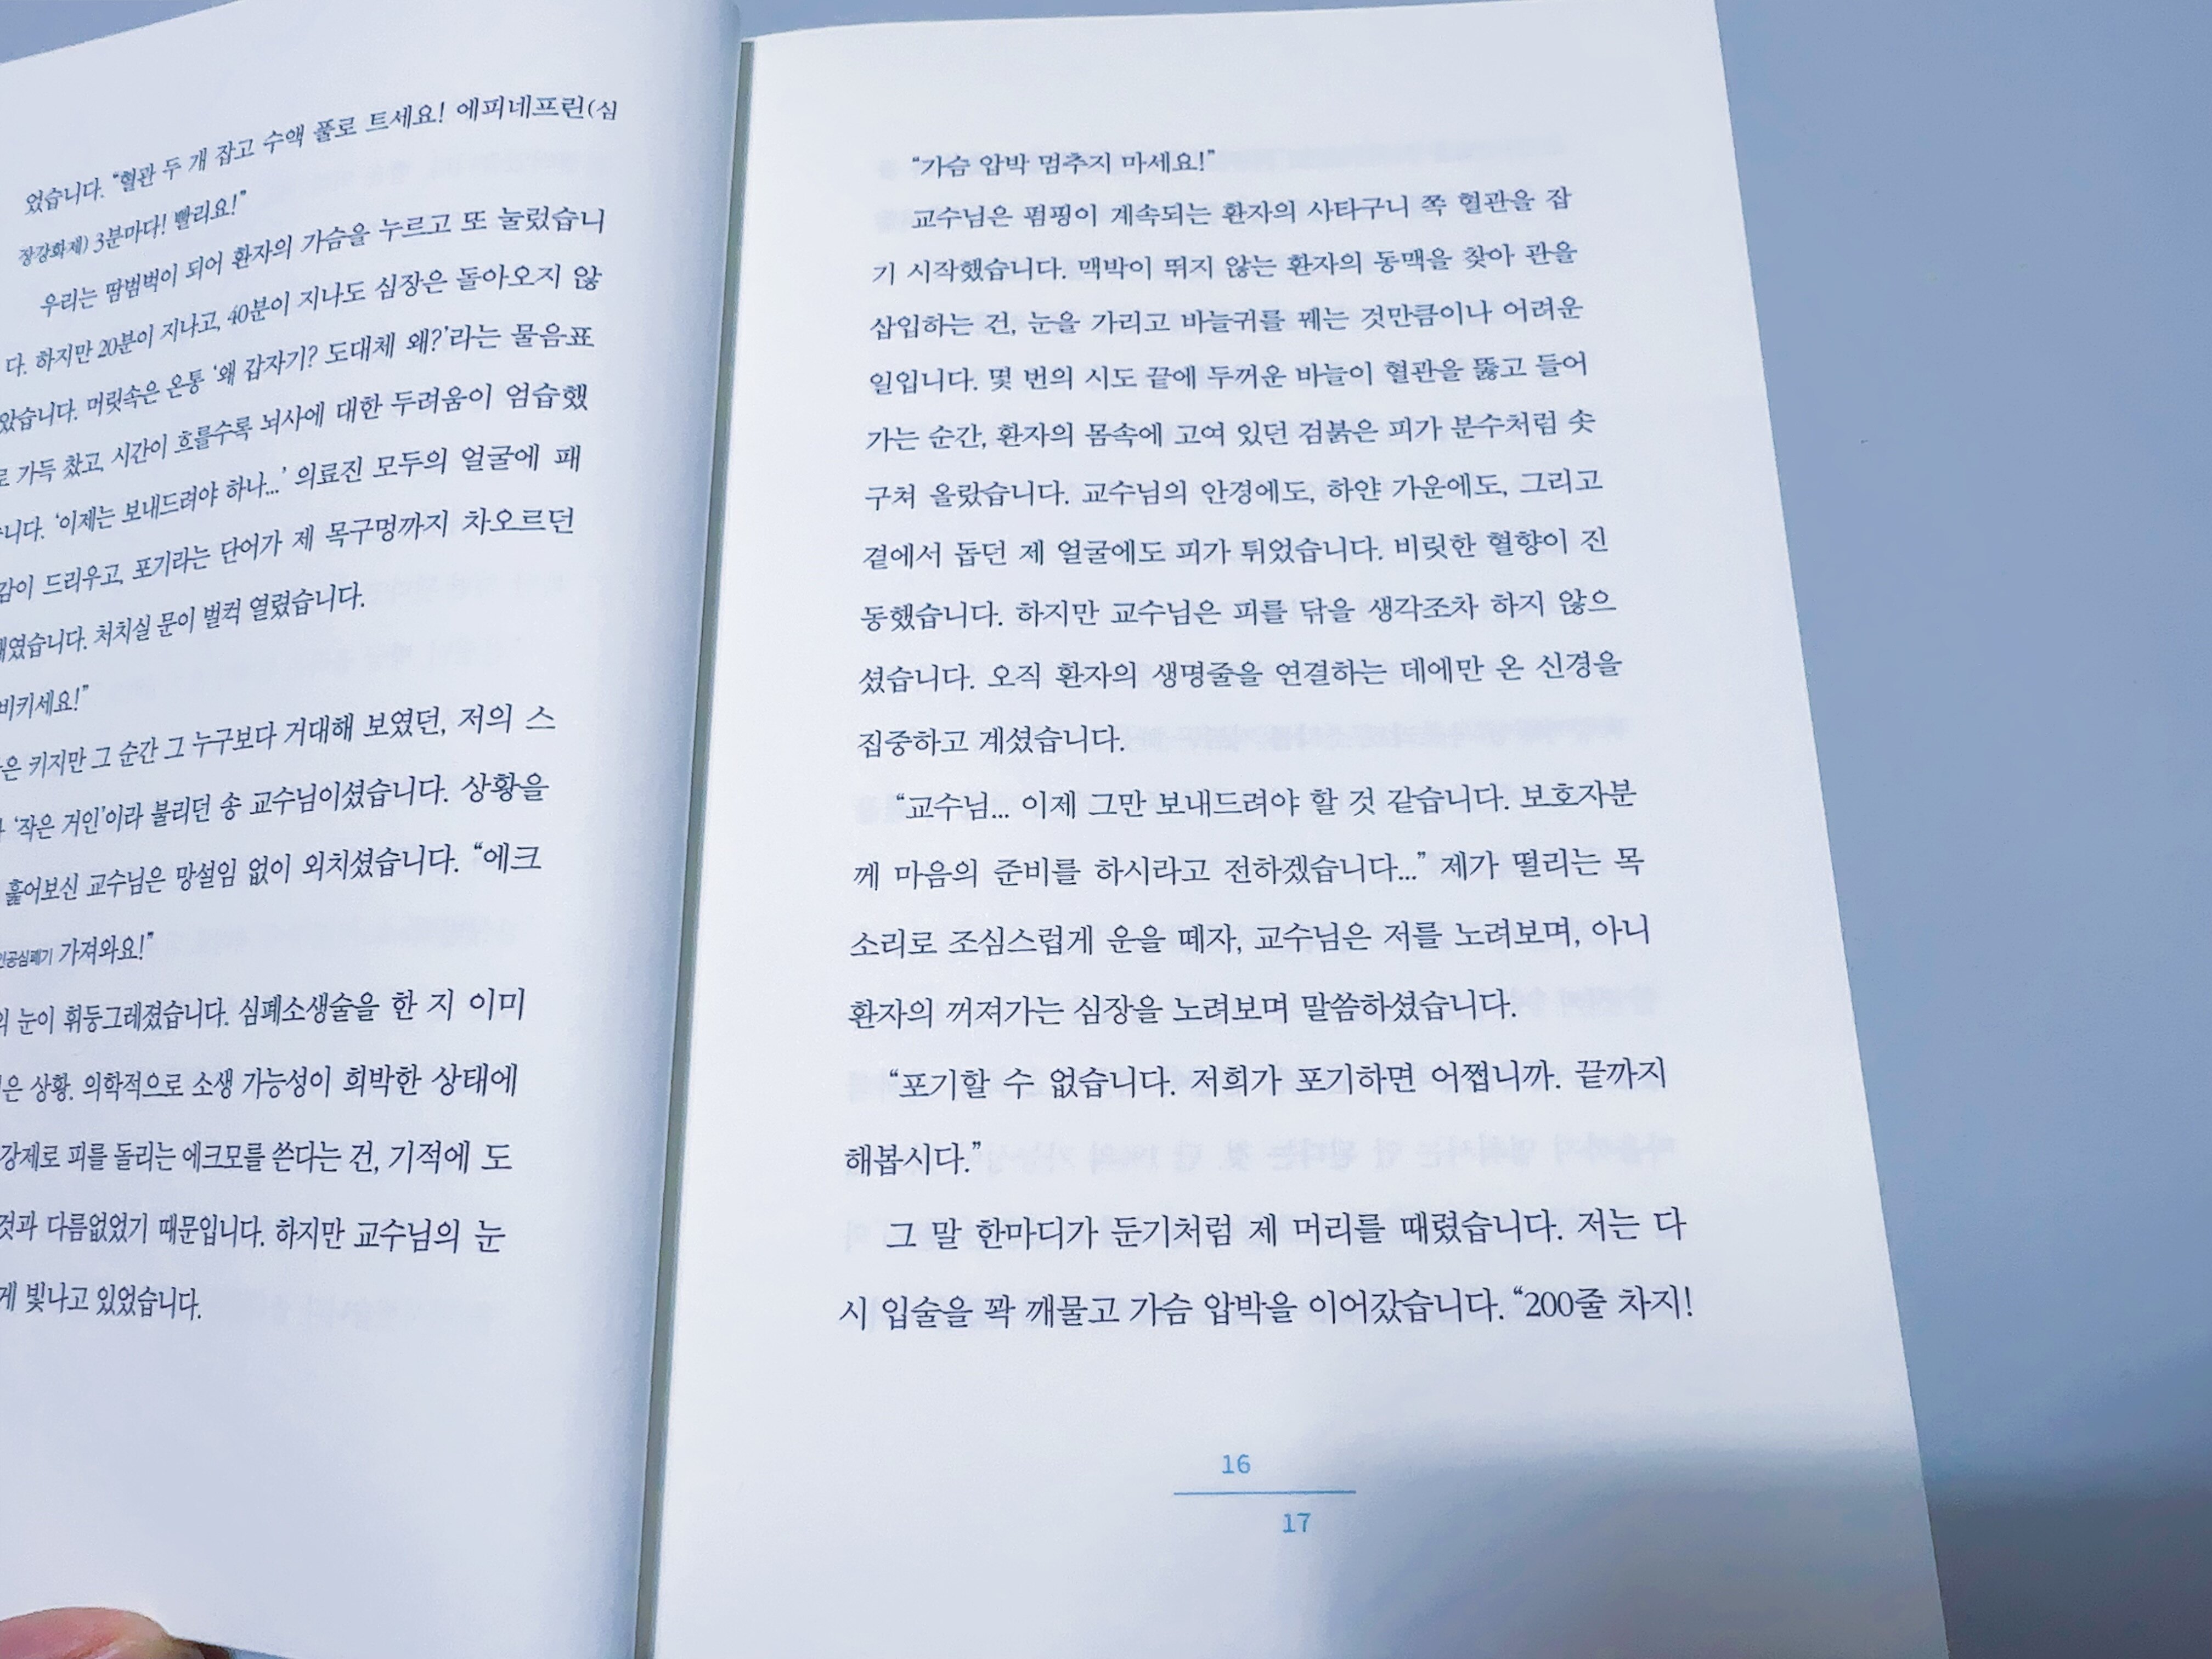 었습니다. “혈관 두 개 잡고 수액 풀로 트세요! 에피네프린(심
장강화제) 3분마다! 빨리요!”
우리는 땀범벅이 되어 환자의 가슴을 누르고 또 눌렀습니
다. 하지만 20분이 지나고, 40분이 지나도 심장은 돌아오지 않
았습니다. 머릿속은 온통 ‘왜 갑자기? 도대체 왜?’라는 물음표
로 가득 찼고, 시간이 흐를수록 뇌사에 대한 두려움이 엄습했
습니다. ‘이제는 보내드려야 하나...’ 의료진 모두의 얼굴에 패
감이 드리우고, 포기라는 단어가 제 목구멍까지 차오르던
처치실 문이 벌컥 열렸습니다.
비키세요!”
은 키지만 그 순간 그 누구보다 거대해 보였던, 저의 스
‘작은 거인’이라 불리던 송 교수님이셨습니다. 상황을
훑어보신 교수님은 망설임 없이 외치셨습니다. “에크
인공심폐기 가져와요!”
의 눈이 휘둥그레졌습니다. 심폐소생술을 한 지 이미
은 상황. 의학적으로 소생 가능성이 희박한 상태에
강제로 피를 돌리는 에크모를 쓴다는 건, 기적에 도
것과 다름없었기 때문입니다. 하지만 교수님의 눈
게 빛나고 있었습니다.
“가슴 압박 멈추지 마세요!”
교수님은 펌핑이 계속되는 환자의 사타구니 쪽 혈관을 잡
기 시작했습니다. 맥박이 뛰지 않는 환자의 동맥을 찾아 관을
삽입하는 건, 눈을 가리고 바늘귀를 꿰는 것만큼이나 어려운
일입니다. 몇 번의 시도 끝에 두꺼운 바늘이 혈관을 뚫고 들어
가는 순간, 환자의 몸속에 고여 있던 검붉은 피가 분수처럼 솟
구쳐 올랐습니다. 교수님의 안경에도, 하얀 가운에도, 그리고
곁에서 돕던 제 얼굴에도 피가 튀었습니다. 비릿한 혈향이 진
동했습니다. 하지만 교수님은 피를 닦을 생각조차 하지 않으
셨습니다. 오직 환자의 생명줄을 연결하는 데에만 온 신경을
집중하고 계셨습니다.
“교수님... 이제 그만 보내드려야 할 것 같습니다. 보호자분
께 마음의 준비를 하시라고 전하겠습니다...” 제가 떨리는 목
소리로 조심스럽게 운을 떼자, 교수님은 저를 노려보며, 아니
환자의 꺼져가는 심장을 노려보며 말씀하셨습니다.
“포기할 수 없습니다. 저희가 포기하면 어쩝니까. 끝까지
해봅시다.”
그 말 한마디가 둔기처럼 제 머리를 때렸습니다. 저는 다
시 입술을 꽉 깨물고 가슴 압박을 이어갔습니다. “200줄 차지!
16
17